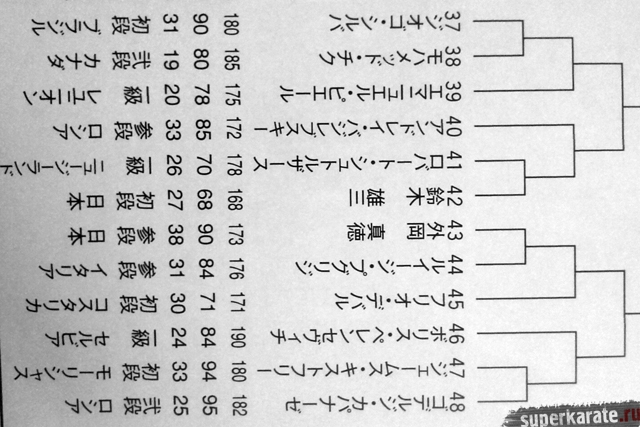 37 ジオゴ・シルバ 180 90 31 初段 ブラジル
38 モハメッド・チク 185 80 19 弐段 カナダ
39 エマニュエル・ピエール 175 78 20 一級 レユニオン
40 アンドレイ・バシレブスキー 172 85 33 参段 ロシア
41 ロバート・シュトルザース 178 70 26 一級 ニュージーランド
42 鈴木 雄三 168 68 27 初段 日本
43 外岡 真徳 173 90 38 参段 日本
44 ルイージ・ブグリジ 176 84 31 参段 イタリア
45 フリオ・デバル 171 71 30 初段 コスタリカ
46 ボリス・ペレンセヴィチ 190 84 24 一級 セルビア
47 ジェームス・キストフリー 180 94 33 初段 モーリシャス
48 ゴデルジ・カパナーゼ 182 95 25 弐段 ロシア
superkarate.ru